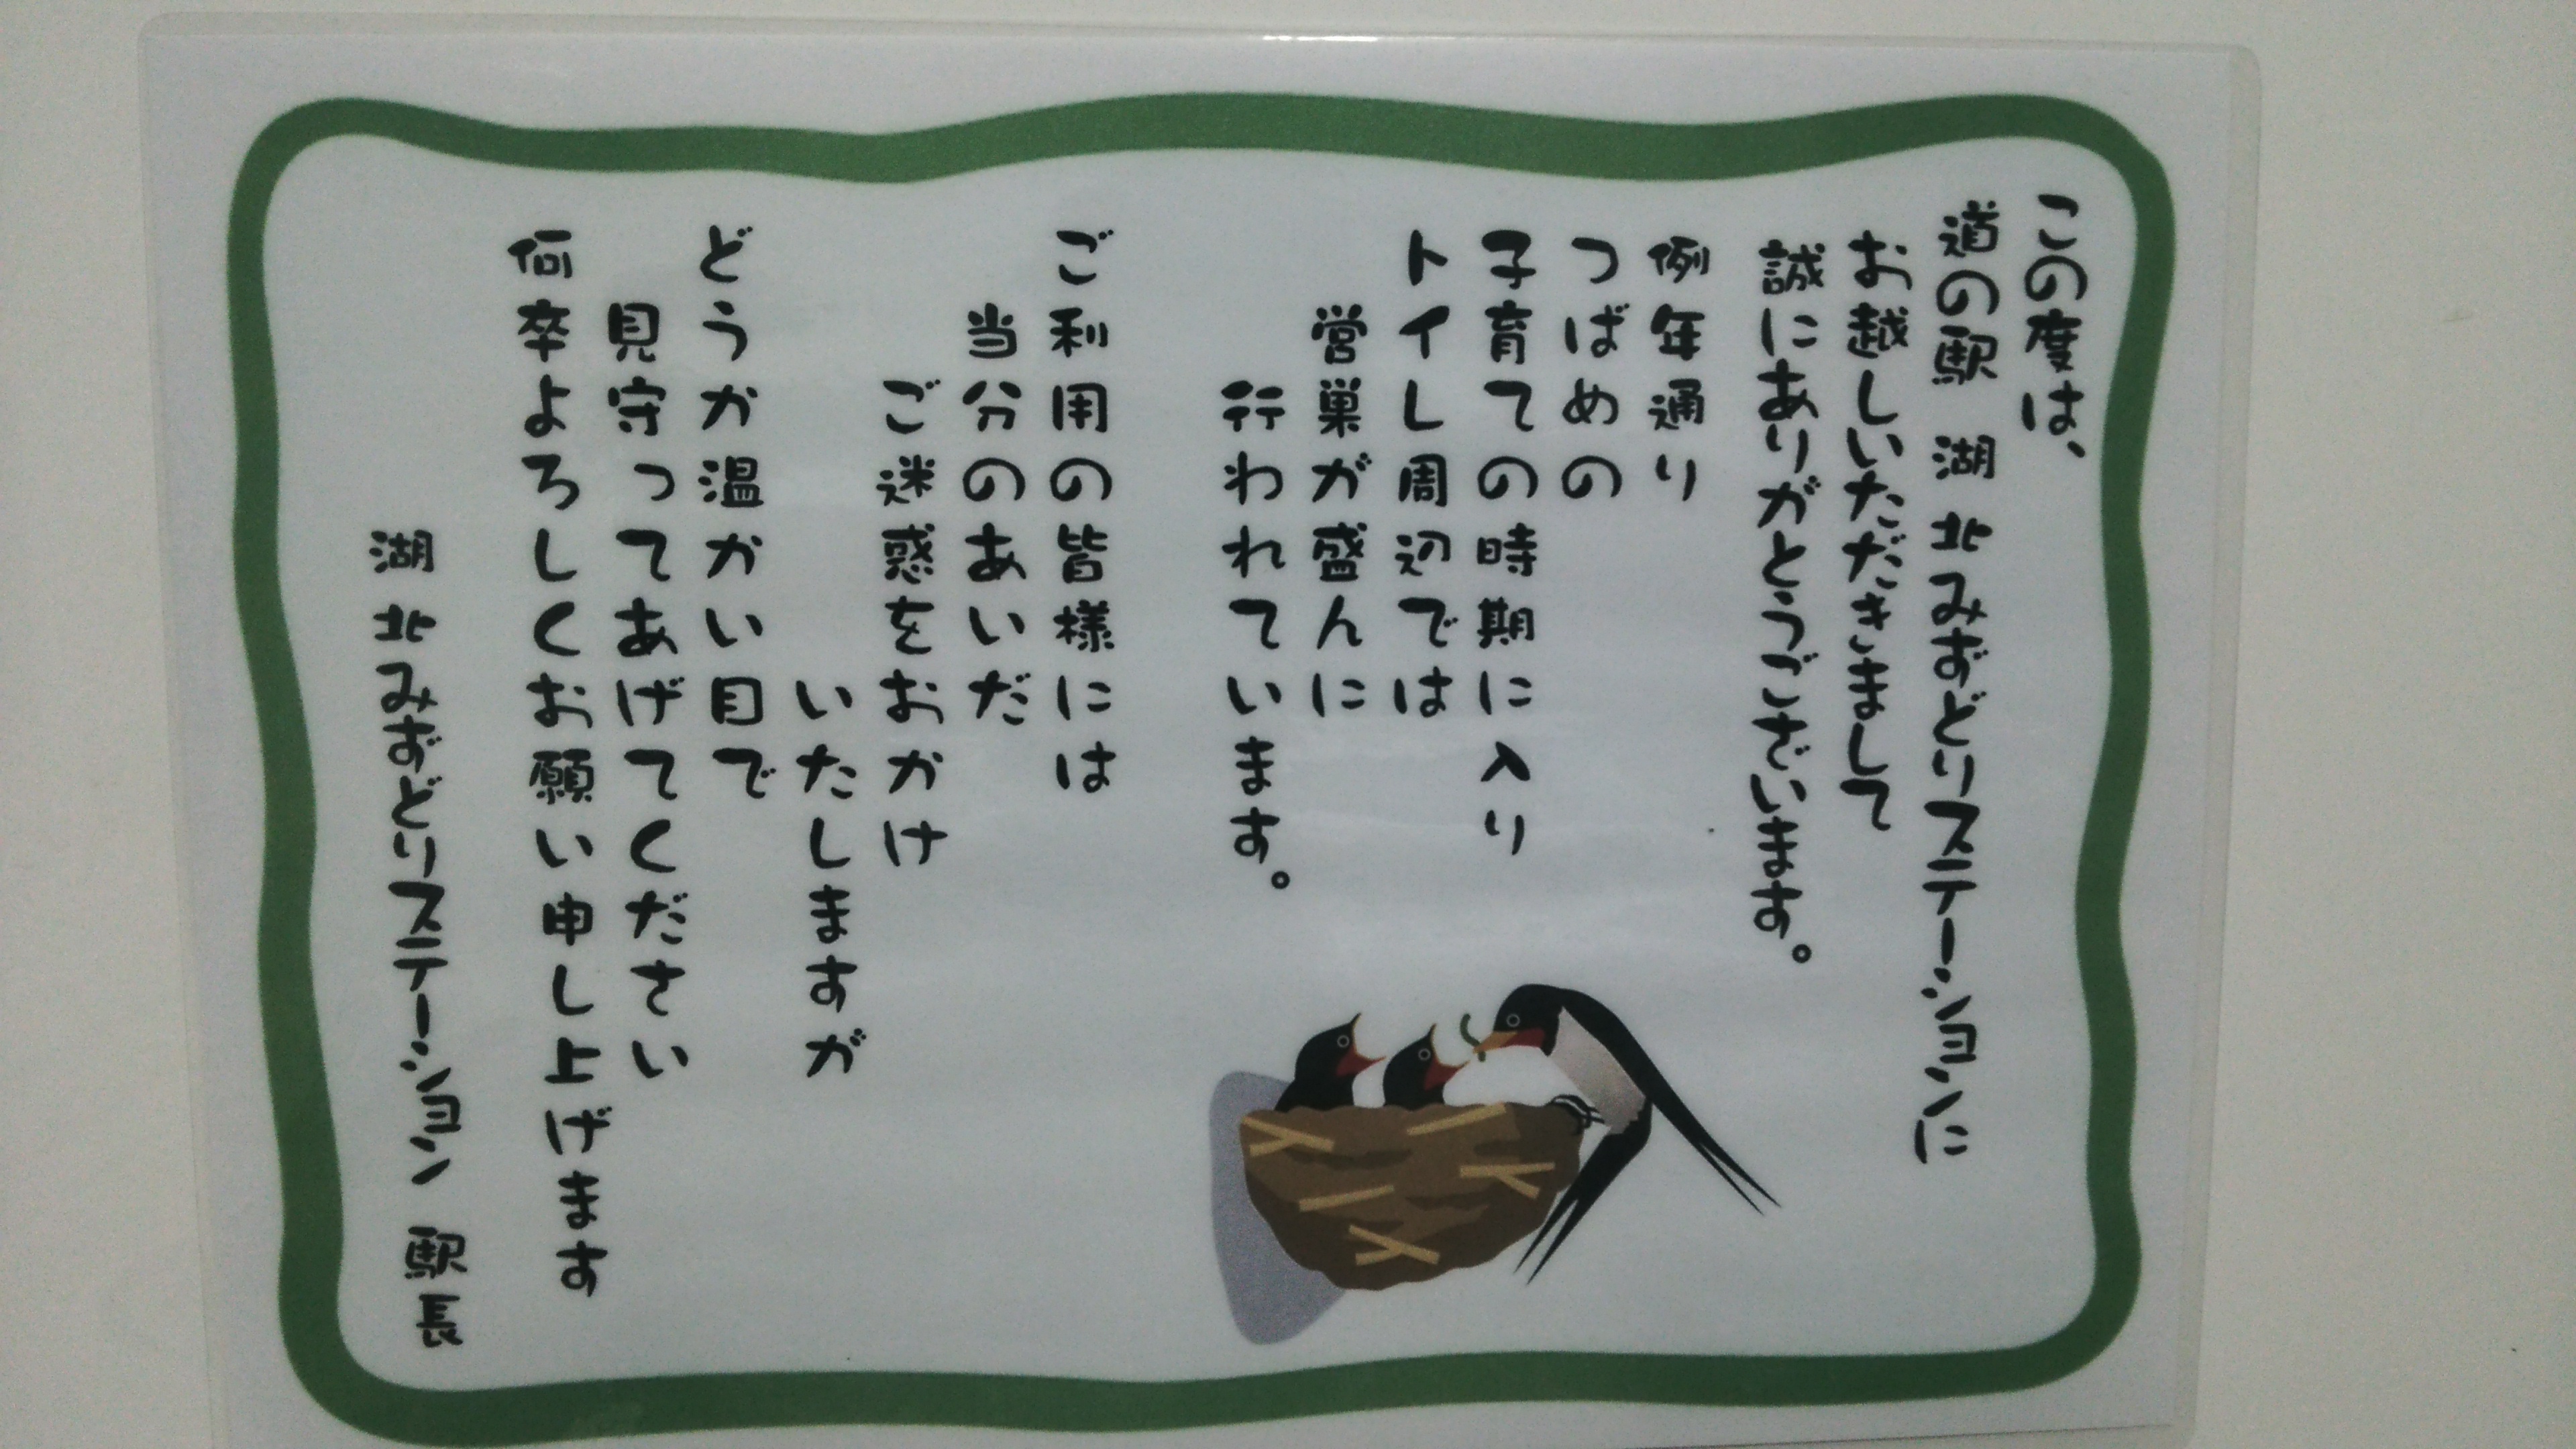 この度は、
道の駅 湖北みずどりステーションに
お越しいただきまして
誠にありがとうございます。
例年通り
つばめの
子育ての時期に入り
トイレ周辺では
営巣が盛んに
行われています。
ご利用の皆様には
当分のあいだ
ご迷惑をおかけ
いたしますが
どうか温かい目で
見守ってあげてください
何卒よろしくお願い申し上げます
湖北みずどりステーション 駅長